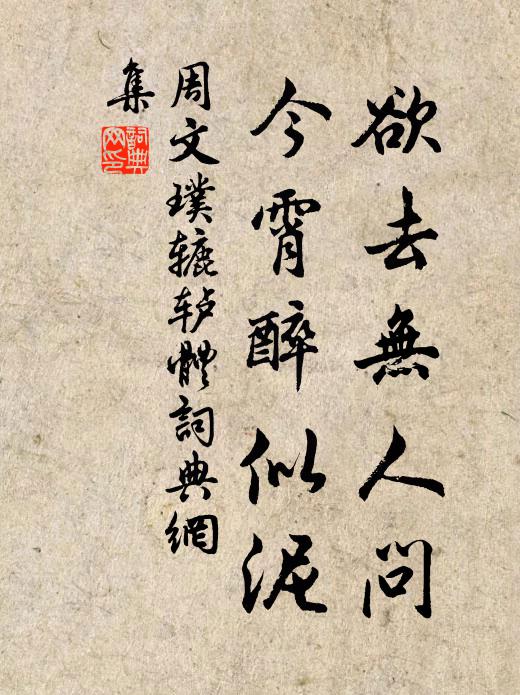 欲去無人問
今霄醉似泥
周文璞辘轳體詞典網
集
詞典
网印